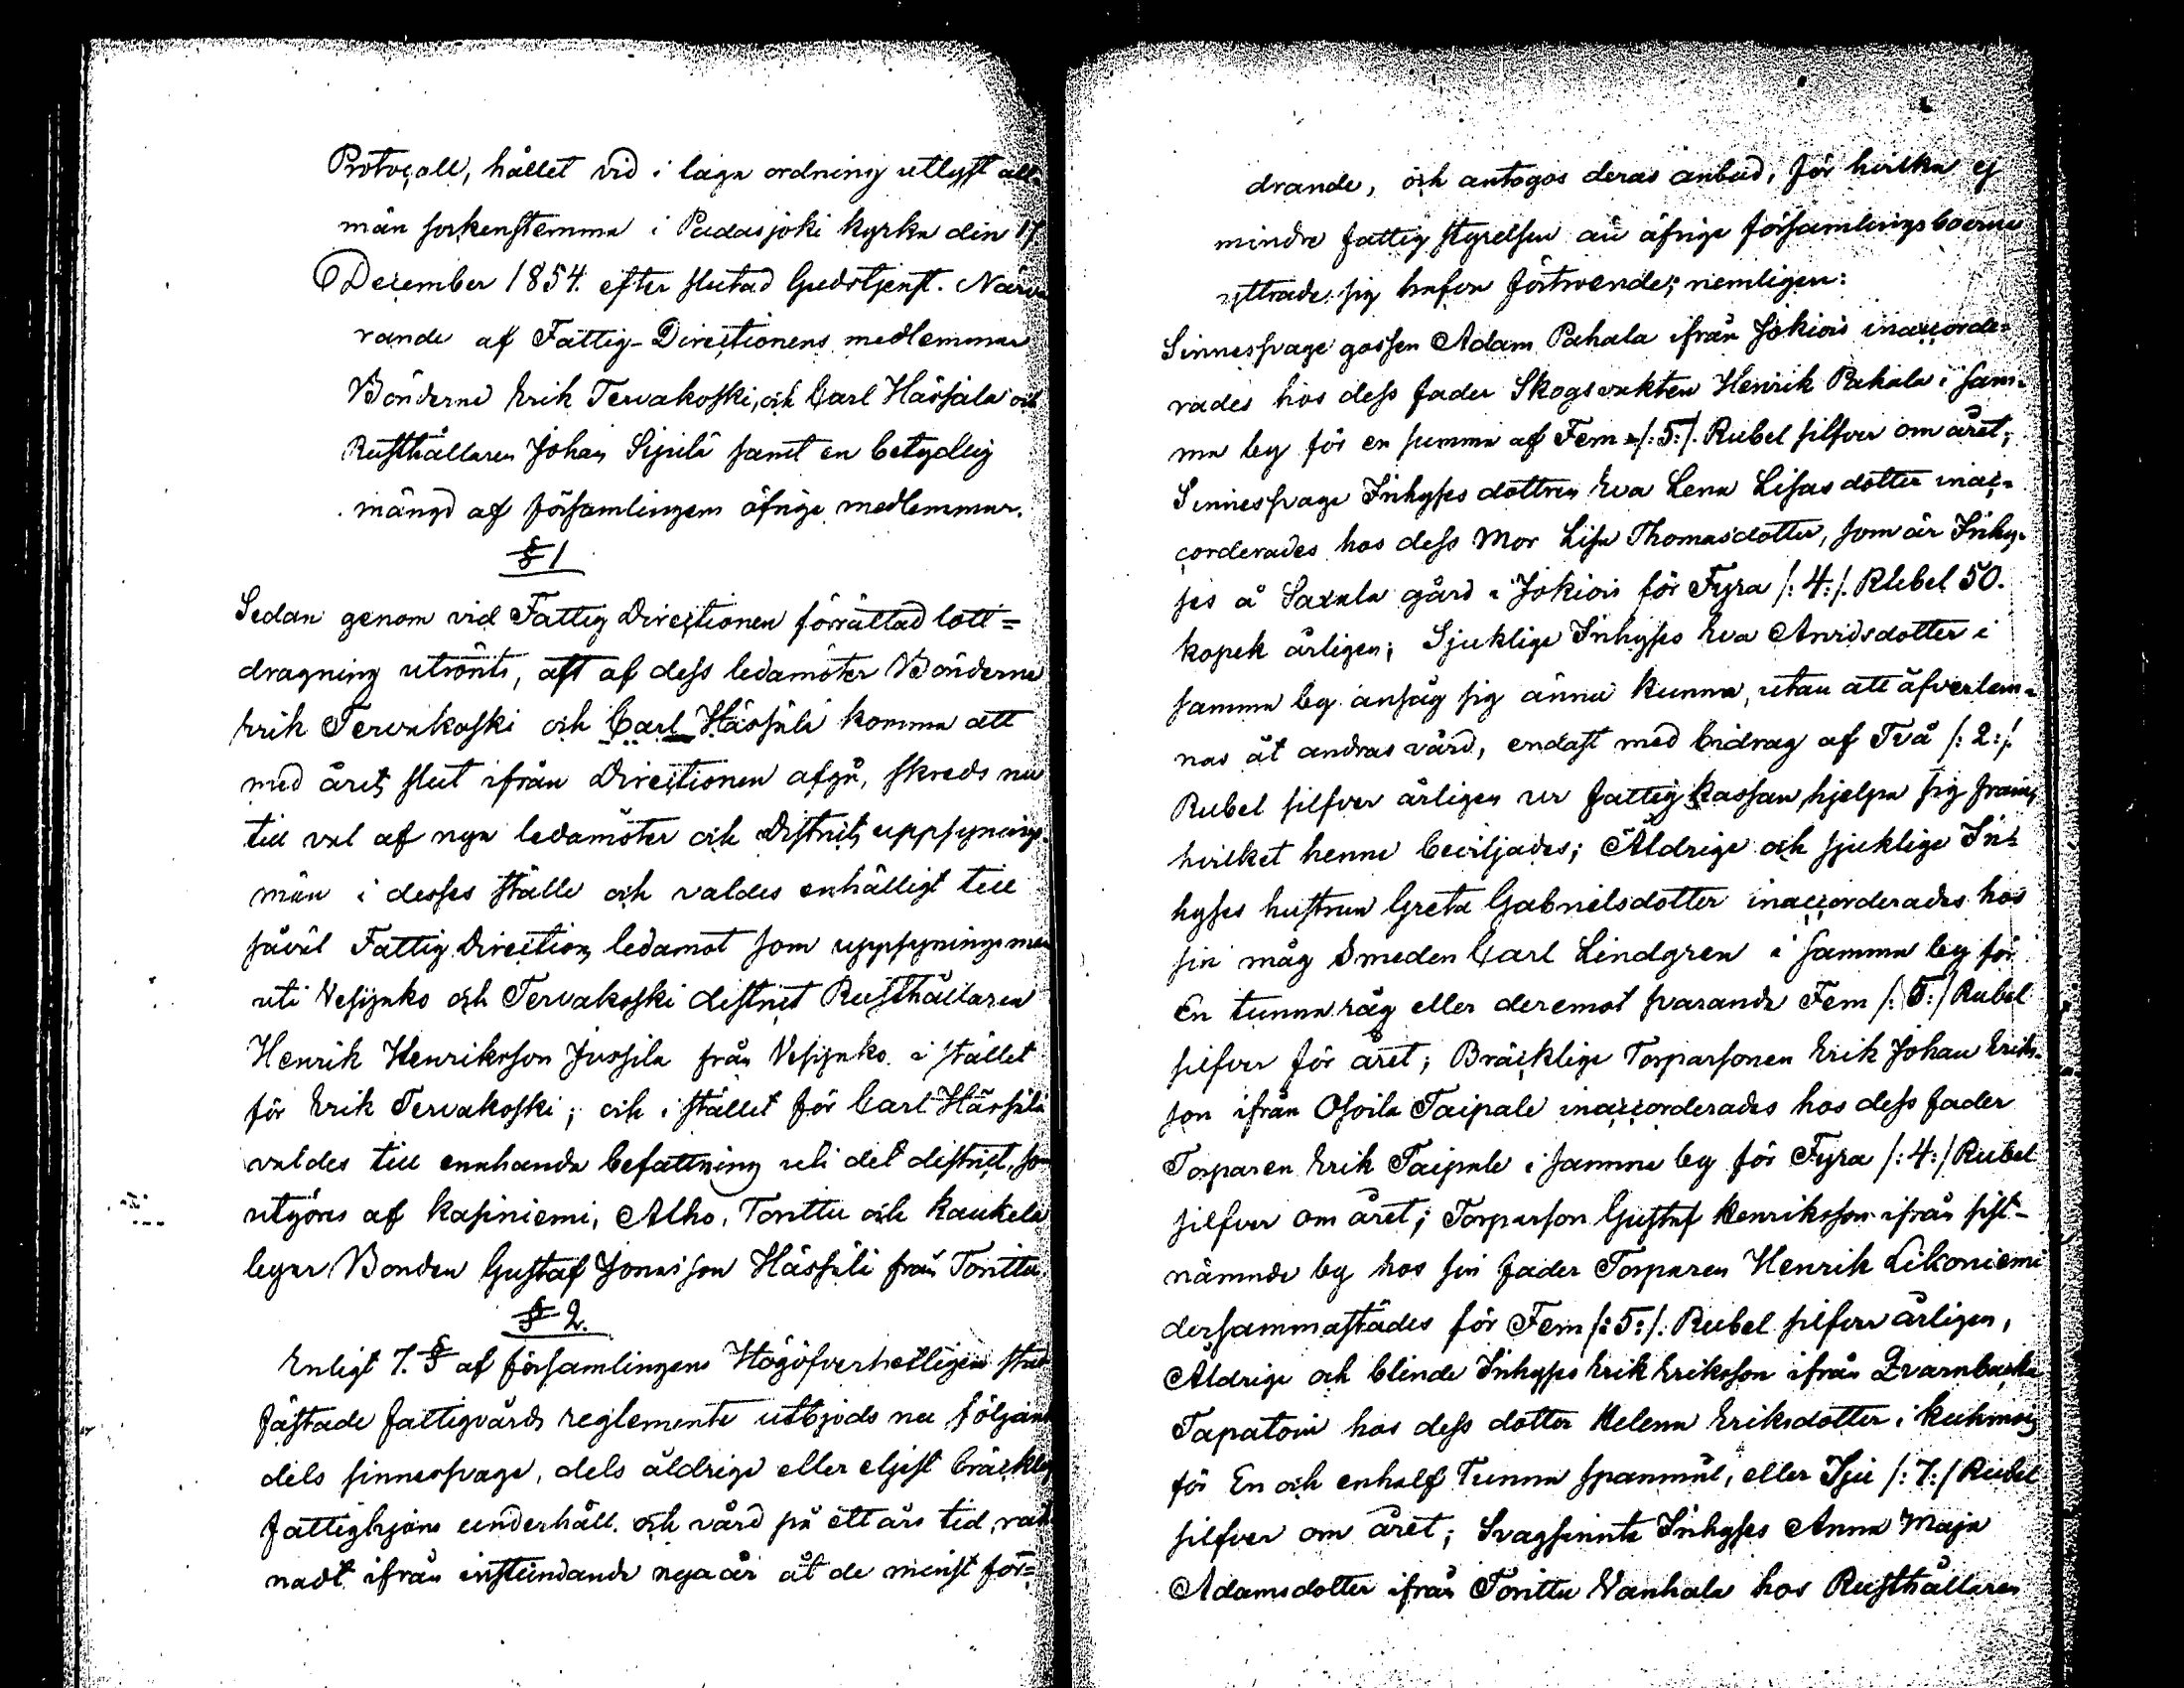 Protocoll, hållet vid i laga ordning utlyst all-
män sockenstemma i Padasjoki kyrka den 17
December 1854. efter slutad Gudstjenst. Närva
rande af Fattig-Directionens medlemmar
Bönderne Erik Tervakoski, och Carl Hässälä och
Rusthållaren Johan Sipilä samt en betydlig
mängd af församlingens öfrige medlemmar.
§ 1
Sedan genom vid Fattig Directionen förrättad lott=
dragning utrönts, att af dess ledamöter Bönderne
Erik Tervakoski och Carl Hässälä komma att
med årets slut ifrån Directionen afgå, skreds nu
till val af nya ledamöter och Districts uppsynings-
män i desses ställe och valdes enhälligt till
såväl Fattig Directions ledamot som uppsyningsman
uti Vesijako och Tervakoski district Rusthållaren
Henrik Henriksson Jussila från Vesijako i stället
för Erik Tervakoski; och i stället för Carl Hässälä
valdes till enahanda befattning uti det district, som
utgöres af Kasiniemi, Alho, Torittu och Kaukela
byar Bonden Gustaf Jonasson Hässälä från Torittu.
§ 2.
Enligt 7. § af församlingens Högöfverhetligen stad
fästade fattigvårds reglemente utbjöds nu följande
dels sinnessvage, dels åldrige eller eljest bräcklige
fattighjons underhåll och vård på ett års tid, räk
nadt ifrån instundande nya år åt de minst for=
drande, och antogos deras anbud, för hvilka ej
mindre fattig styrelsen än öfrige församlingsboerne
yttrade sig hafva förtroende; nemligen:
Sinnessvage gossen Adam Pahala ifrån Jokiois inaccorde=
rades hos dess fader Skogsvakten Henrik Pahala i sam-
ma by för en summa af Fem /:5:/. Rubel silfver om året;
Sinnessvage Inhyses dottren Eva Lena Lisas dotter inac-
corderades hos dess Mor Lisa Thomasdotter, som är Inhy-
ses å Saxala gård i Jokiois för Fyra /:4:/. Rubel 50.
kopek årligen; Sjuklige Inhyses Eva Arvidsdotter i
samma by ansåg sig ännu kunna, utan att öfverlem-
nas åt andras vård, endast med bidrag af Två /:2:/.
Rubel silfver årligen ur fattig kassan, hjelpa sig fram,
hvilket henne beviljades; Åldrige och sjuklige In-
hyses hustrun Greta Gabrielsdotter inaccorderades hos
sin måg Smeden Carl Lindgren i samma by för
En tunna råg eller deremot svarande Fem /:5:/ Rubel
silfver för året; Bräcklige Torparsonen Erik Johan Eriks-
son ifrån Osoila Taipale inaccorderades hos dess fader
Torparen Erik Taipale i samma by för Fyra /:4:/ Rubel
silfver om året; Torparson Gustaf Henriksson ifrån sist-
nämnde by hos sin fader Torparen Henrik Likoniemi
dersammastädes för Fem /:5:/. Rubel silfver årligen,
Åldrige och blinde Inhyses Erik Eriksson ifrån Qvarnbacka
Tapatoin hos dess dotter Helena Eriksdotter i Kuhmois
för En och enhalf Tunna spannmål, eller Sju /:7:/ Rubel
silfver om året; Svagsinnta Inhyses Anna Maja
Adamsdotter ifrån Torittu Vanhala hos Rusthållaren